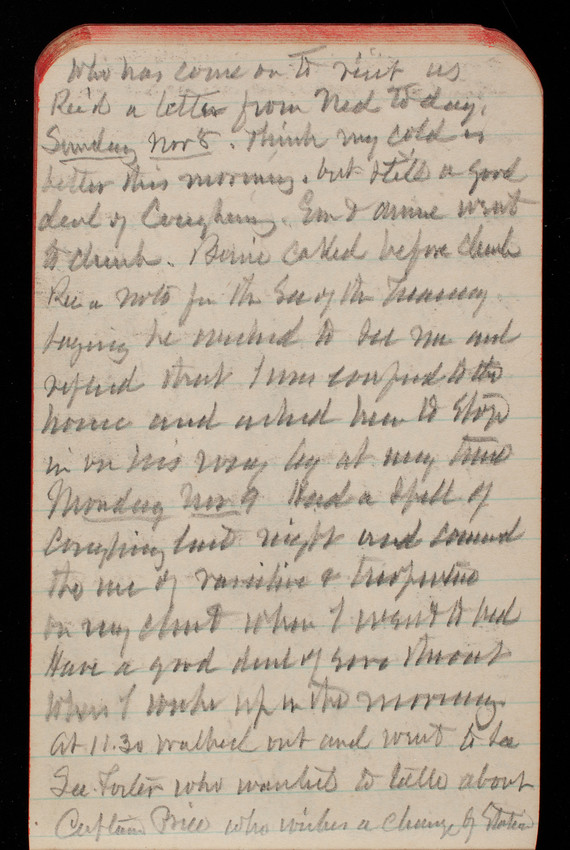 who has come on to visit us
Rec'd a letter from Ned to day.
Sunday Nov 8. Think my cold is
better this morning. but still a good
deal of Coughing. Em & Anne went
to church. Bernie called before church
Rec a note fr the Sec of the Treasury
saying he wished to see me and
replied that I was confined to the
house and asked him to stop
in on his way by at any time
Monday Nov 9 Had a spell of
Coughing last night and
the use of vaseline & turpentine
on my chest when I went to bed
Have a good deal of sore throat
when I woke up in the morning.
At 11.30 walked out and went to see
Sec Foster who wanted to talk about
Captain Price who wishes a change of Station